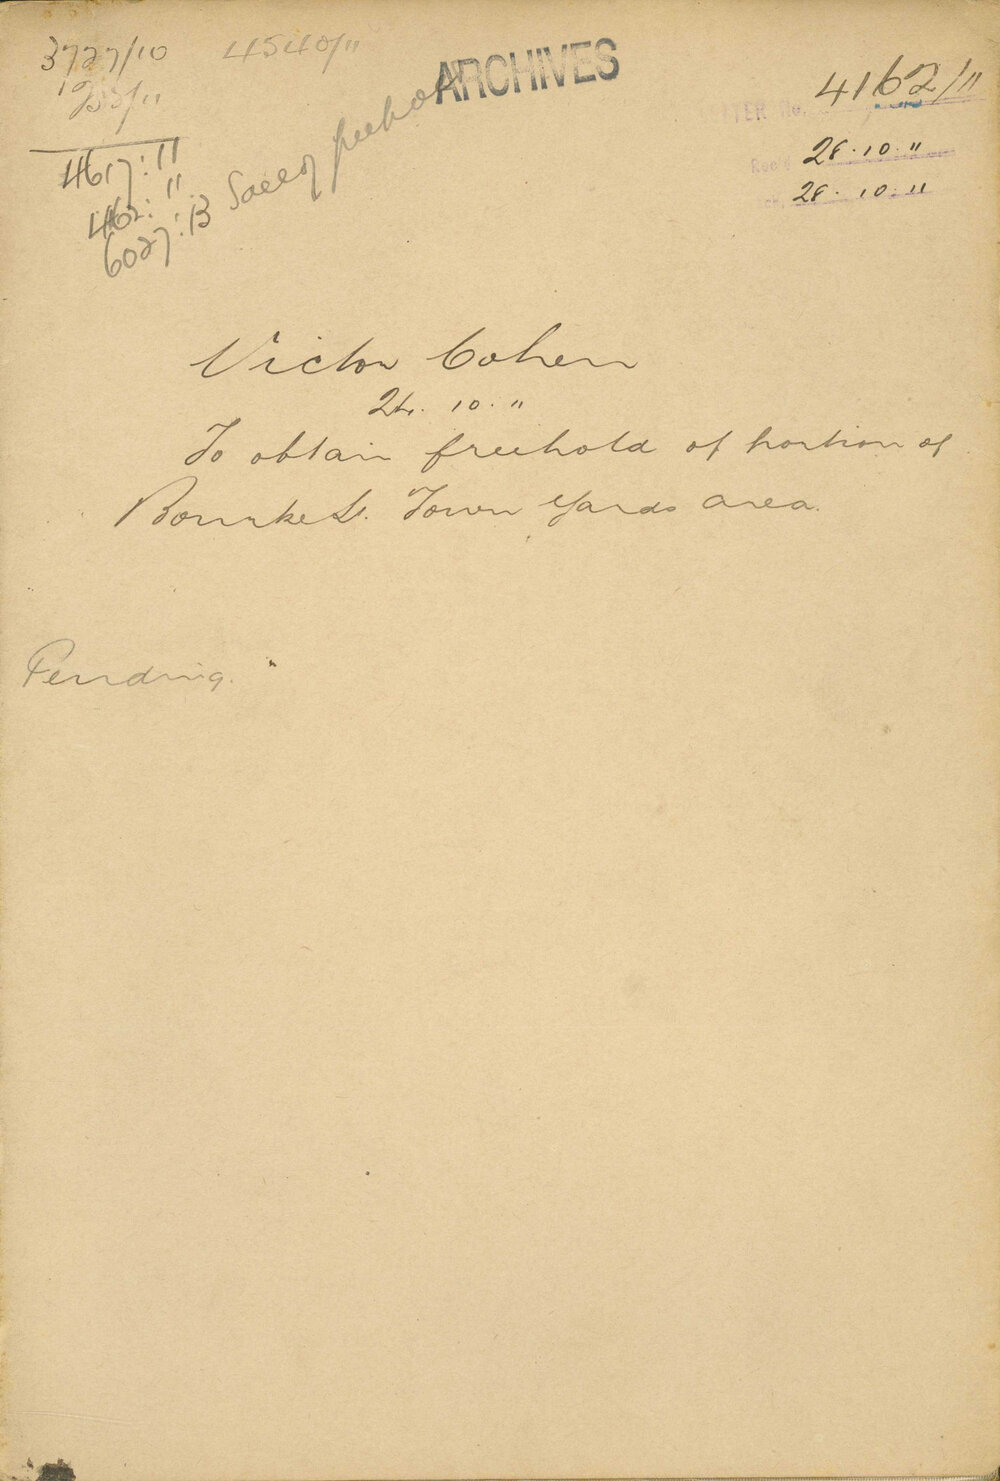 3727/10 4540/11
ARCHIVES
4162/11
1255/11
4617:11
462:11
6027:13 Sale of freehold
Rec'd 28.10.11
28.10.11
Victor Cohen
24.10.11
To obtain freehold of portion of
Bourke St. Town Yards area.
Pending.